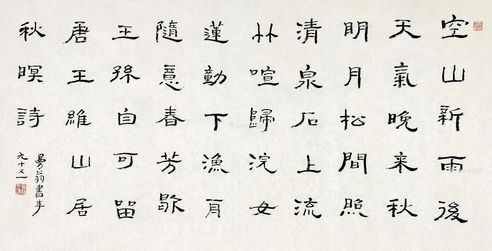 空山新雨後
天氣晚来秋
明月松間照
清泉石上流
竹喧歸浣女
蓮動下漁舟
隨意春芳歇
王孫自可留
唐王維山居
秋暝詩
曼翁書年
九十又一